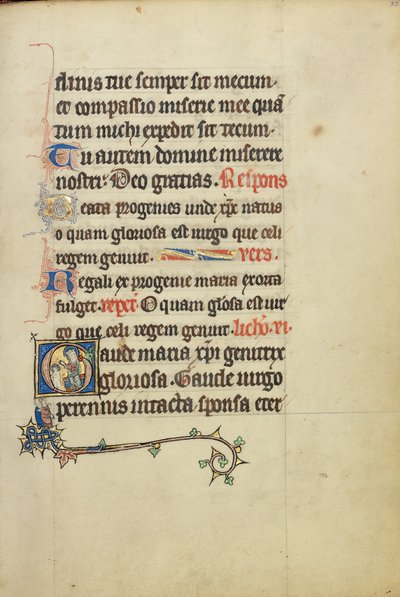 dinis tue semper sit mecum
et compassio miserie mee quā
tum michi expedit sit tecum.
Tu autem domine miserere
nostri. Deo gratias. Respons
Beata progenies unde xp̄c natus
o quam gloriosa est uirgo que celi
regem genuit. vers.
Regali ex progenie maria exorta
fulget. repet. O quam glōsa est uir
go que celi regem genuit. licho. vi.
Gaude maria xp̄i genitrix
gloriosa. Gaude uirgo
perennius intacta sponsa eter